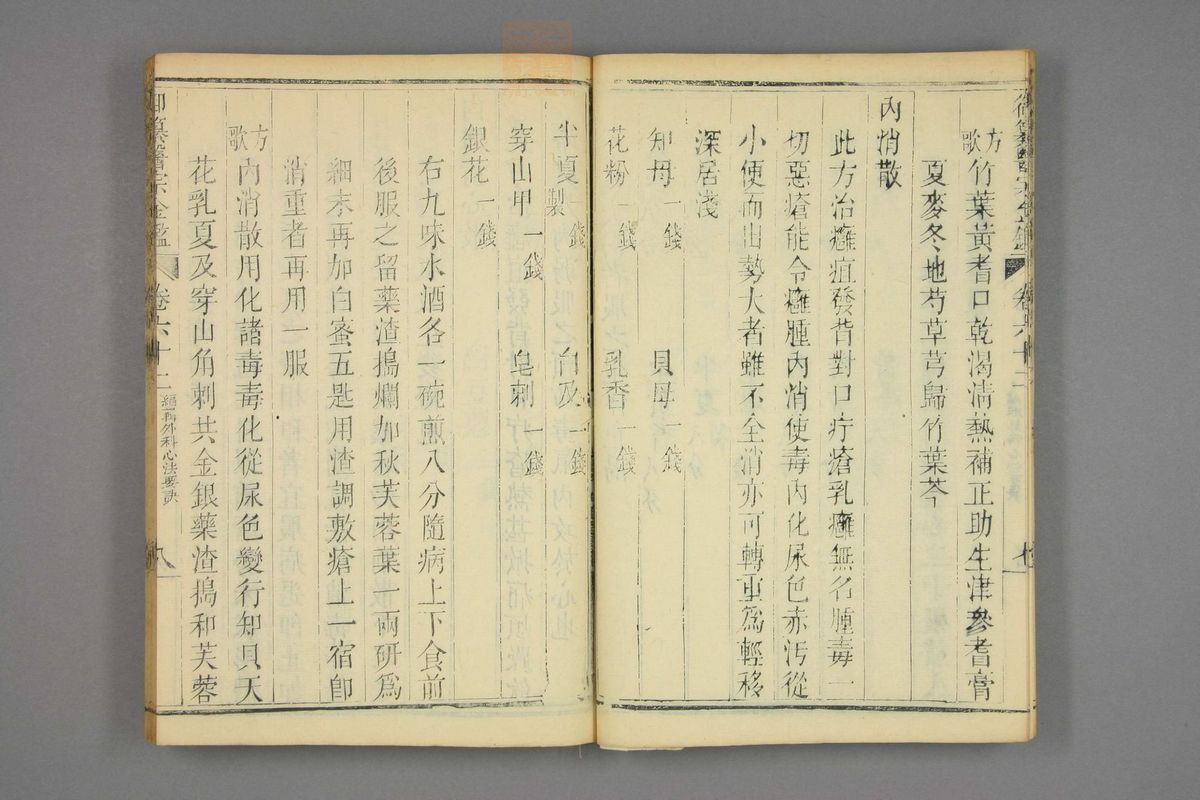 方歌 竹葉黃耆口乾渴清熱補正助生津參耆膏
夏麥冬地芍草芎歸竹葉芩
內消散
此方治癰疽發背對口疔瘡乳癰無名腫毒一
切惡瘡能令癰腫內消使毒內化尿色赤污從
小便而出勢大者雖不全消亦可轉重爲輕移
深居淺
知母一錢 貝母一錢
花粉一錢 乳香一錢
半夏製一錢 白及一錢
穿山甲一錢 皂刺一錢
銀花一錢
右九味水酒各一碗煎八分隨病上下食前
後服之留藥渣搗爛加秋芙蓉葉一兩研爲
細末再加白蜜五匙用渣調敷瘡上一宿卽
消重者再用一服
方歌 內消散用化諸毒毒化從尿色變行知貝天
花乳夏及穿山角刺共金銀藥渣搗和芙蓉
御纂醫宗金鑑 卷六十二 編輯外科心法要訣 八